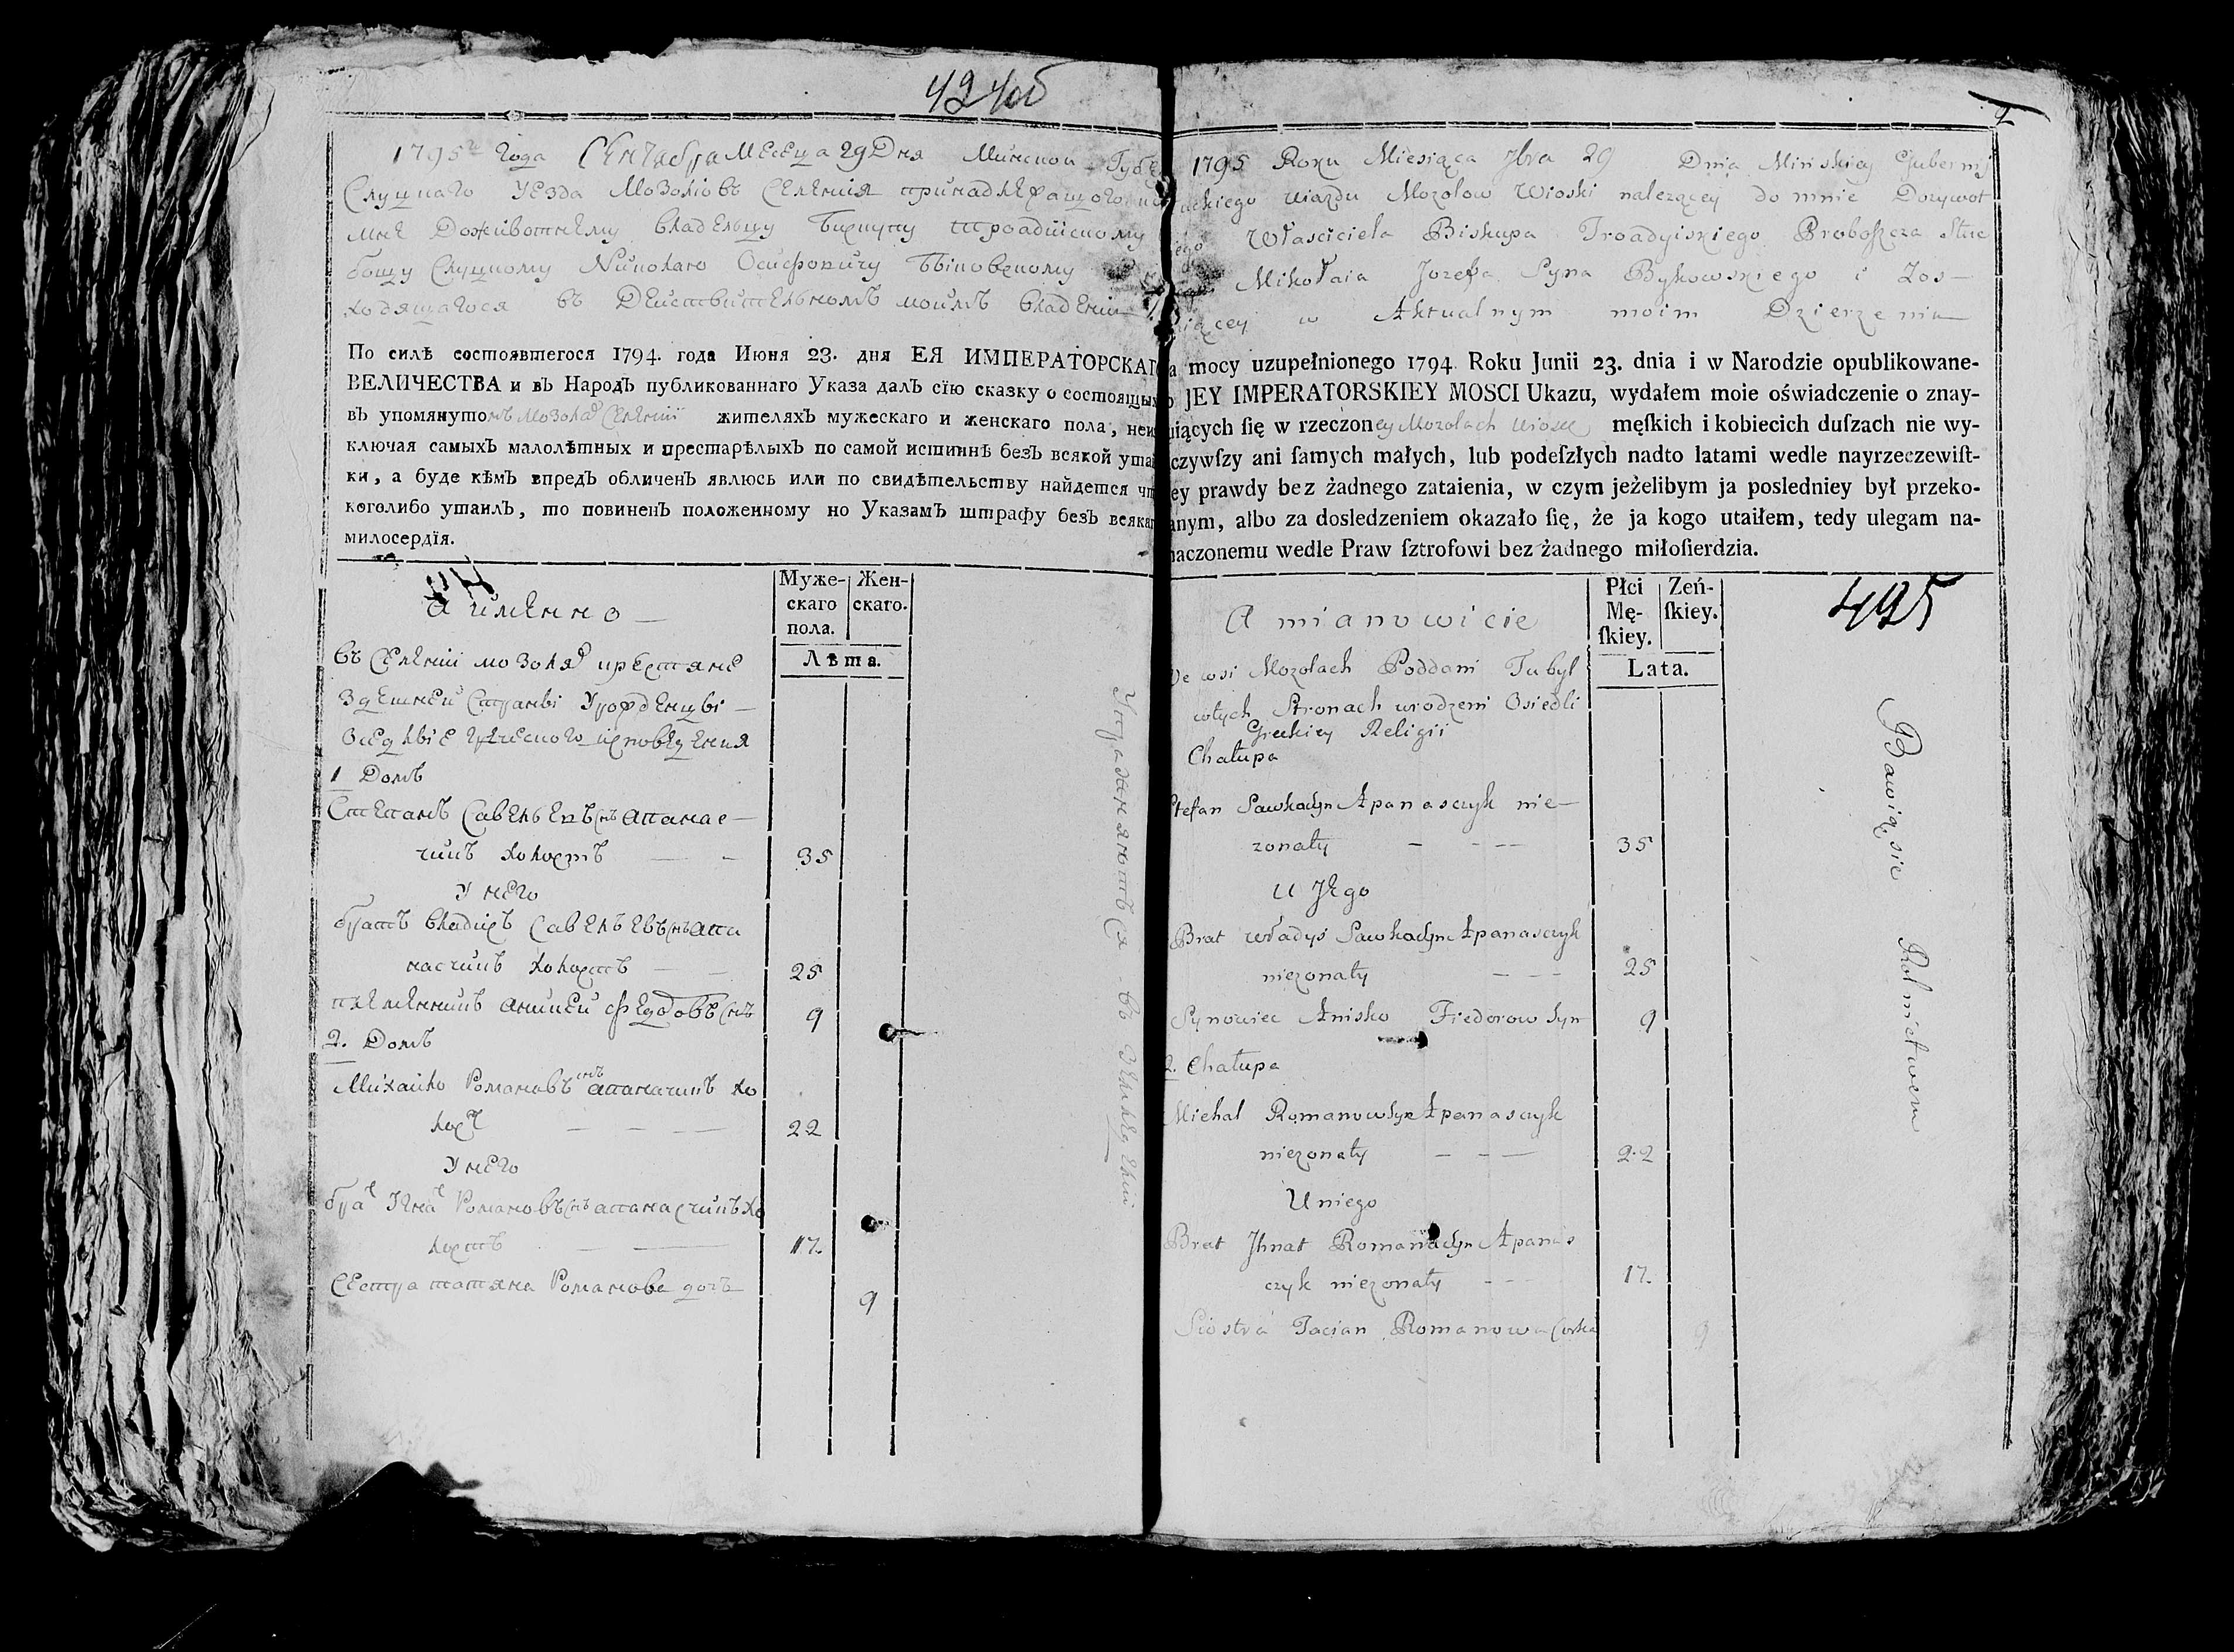 424об
1795го Года Сентабра Месеца 29 Дня Минской Губе
Слуцкаго Уезда Мозолювъ Селения принадлежащого
мне Доживотнему владельцу Бискупу Троадийскому
бощу Слуцкому Николаю Осифовичу Быковскому
ходящагося въ Действительномъ моимъ владении
По силѣ состоявшегося 1794. года Июня 23. дня ЕЯ ИМПЕРАТОРСКАГ
ВЕЛИЧЕСТВА и въ Народъ публикованнаго Указа далъ сїю сказку о состоящих
въ упомянутомъ Мозолах Селении жителяхъ мужескаго и женскаго пола, неис
ключая самыхъ малолѣтных и престарѣлыхъ по самой истиннѣ безъ всякой утаи
ки, а буде кѣмъ впредъ обличенъ явлюсь или по свидѣтельству найдется чт
коголибо утаилъ, то повиненъ положенному но Указамъ штрафу безъ всякаг
милосердїя.
А именно
Муже- Жен-
скаго скаго.
пола.
Лѣта.
въ Селении мозолях крестяне
здешней Страны Урожденцы
Оседлые греческого исповедения
1 Домъ
Степанъ Савельевъ снъ Апанас-
чикъ холостъ 35
У него
братъ владысь Савельевъ снъ апа
насчикъ холостъ 25
племенникъ Анискей Федоровъ снъ 9
2. Домъ
Михайло Романовъ снъ апаначикъ хо
лост 22
У него
брат Игнат Романовъ снъ апанасчикъ хо
лостъ 17.
Сестра татяна Романова дочъ 9
Упражняютъся во Земледелии
1795 Roku Miesiąca 7bra 29 Dnia Minskiey Gubernij
uckiego Uiazdu Mozolow Wioski nalezącey do mnie Dozywot
iego Własciciela Biskupa Troadyiskiego Proboszcza Słuc
Mikołaia Jozefa Syna Bykowskiego i Zos-
iącey w Aktualnym moim Dzierzeniu
a mocy uzupełnionego 1794. Roku Junii 23. dnia i w Narodzie opublikowane-
o JEY IMPERATORSKIEY MOSCI Ukazu, wydałem moie oświadczenie o znay-
uiących ſię w rzeczoney Mozolach Wiosce męſkich i kobiecich duſzach nie wy-
czywſzy ani ſamych małych, lub podeſzłych nadto latami wedle nayrzeczewiſt-
ey prawdy bez żadnego zataienia, w czym jeżelibym ja posledniey był przeko-
anym, albo za dosledzeniem okazało ſię, że ja kogo utaiłem, tedy ulegam na-
naczonemu wedle Praw ſztrofowi bez żadnego miłoſierdzia.
A mianowicie
Płci Zeń-
Mę- ſkiey.
ſkiey.
Lata.
495
We wsi Mozolach Poddani Tubyl
wtych Stronach urodzeni Osiedli
Greckiey Religii
Chałupa
Stefan Sawka syn Apanasczyk nie-
zonaty 35
U Jego
Brat Władyś Sawka syn Apanasczyk
niezonaty 25
Synowiec Anisko Fiedorow Syn 9
2. Chałupa
Michal Romanow Syn Apanasczyk
niezonaty 22
U niego
Brat Jhnat Romana Syn Apanas
czyk niezonaty 17.
Siostra Tacian Romanowa Corka 9
Bawią sie Rolnictwem